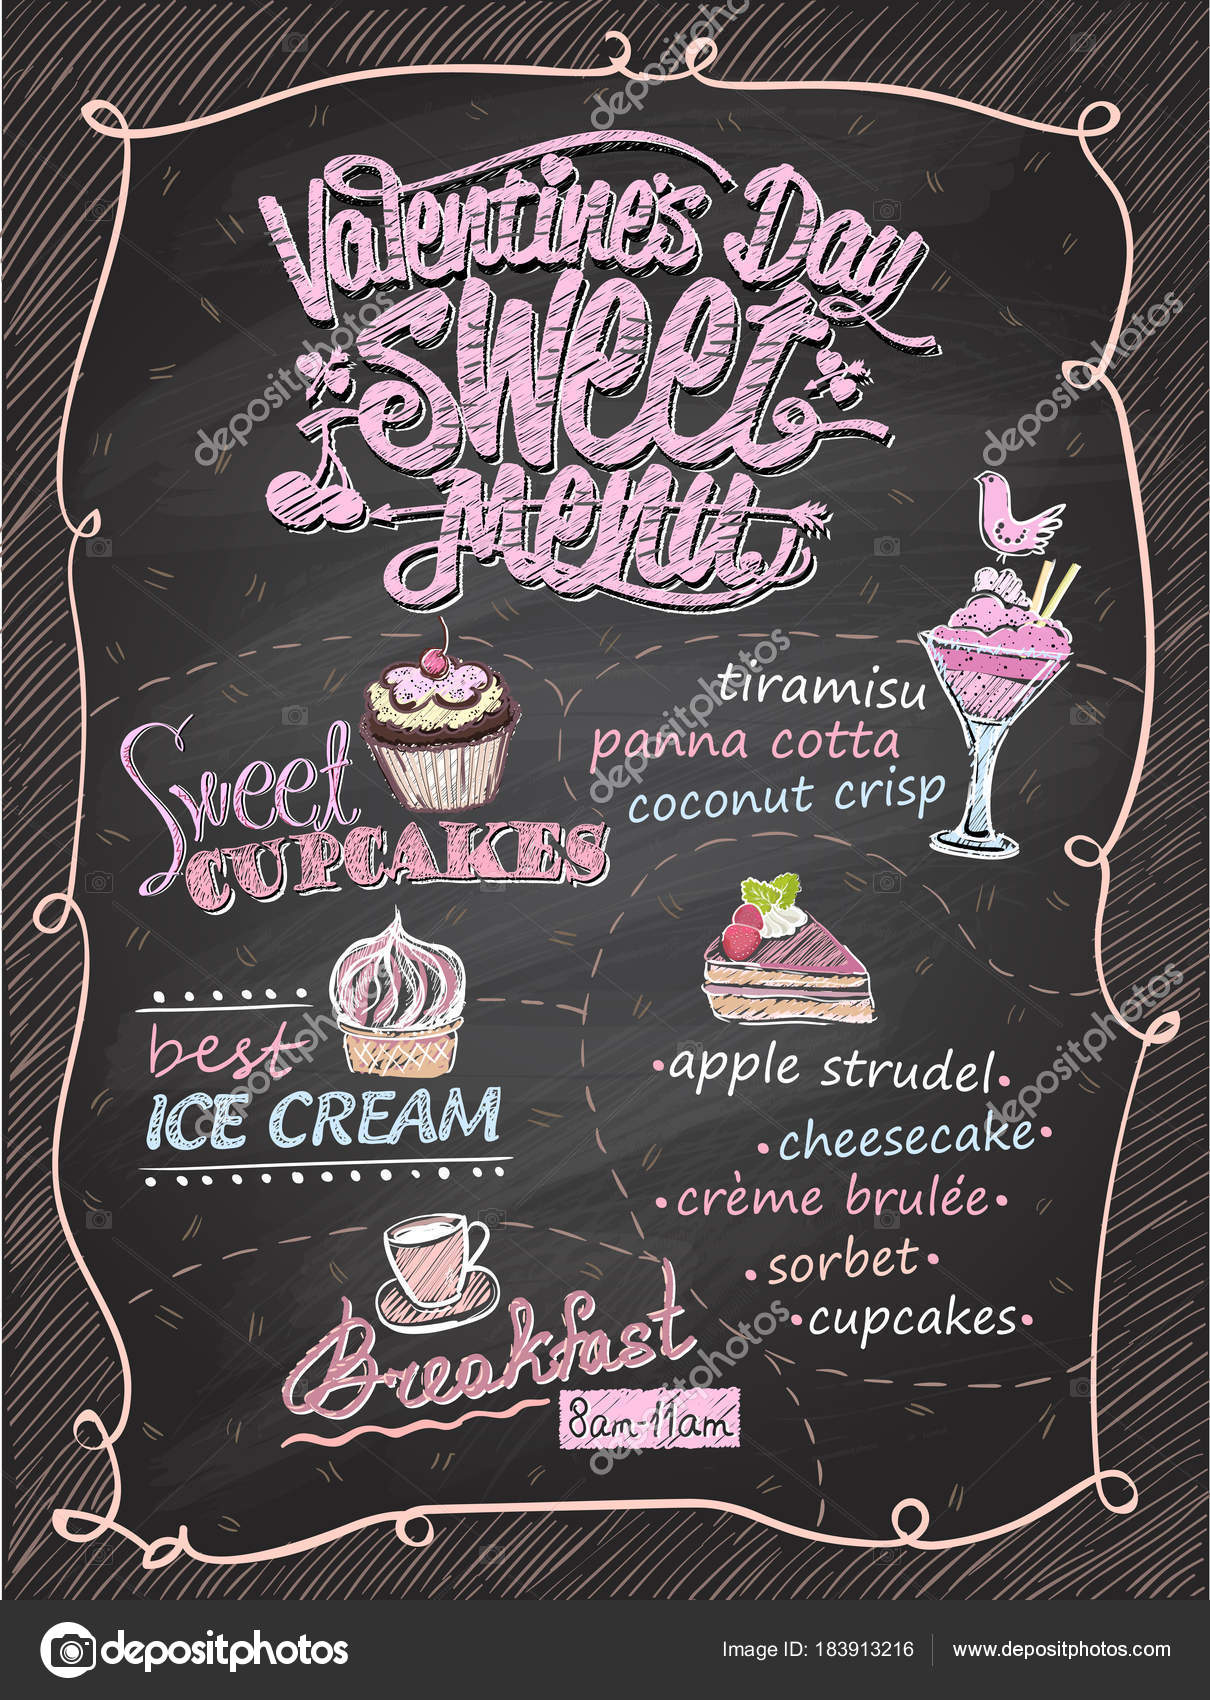 Valentine's Day
Sweet
Menu
tiramisu
panna cotta
coconut crisp
Sweet
CUPCAKES
best
ICE CREAM
•apple strudel•
•cheesecake•
•crème brulée•
•sorbet•
•cupcakes•
Breakfast
8am-11am
depositphotos
Image ID: 183913216
www.depositphotos.com